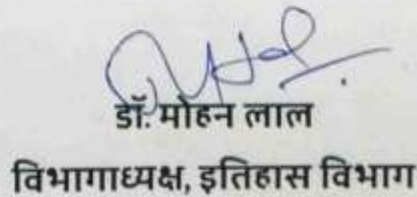 डॉ. मोहन लाल
विभागाध्यक्ष, इतिहास विभाग